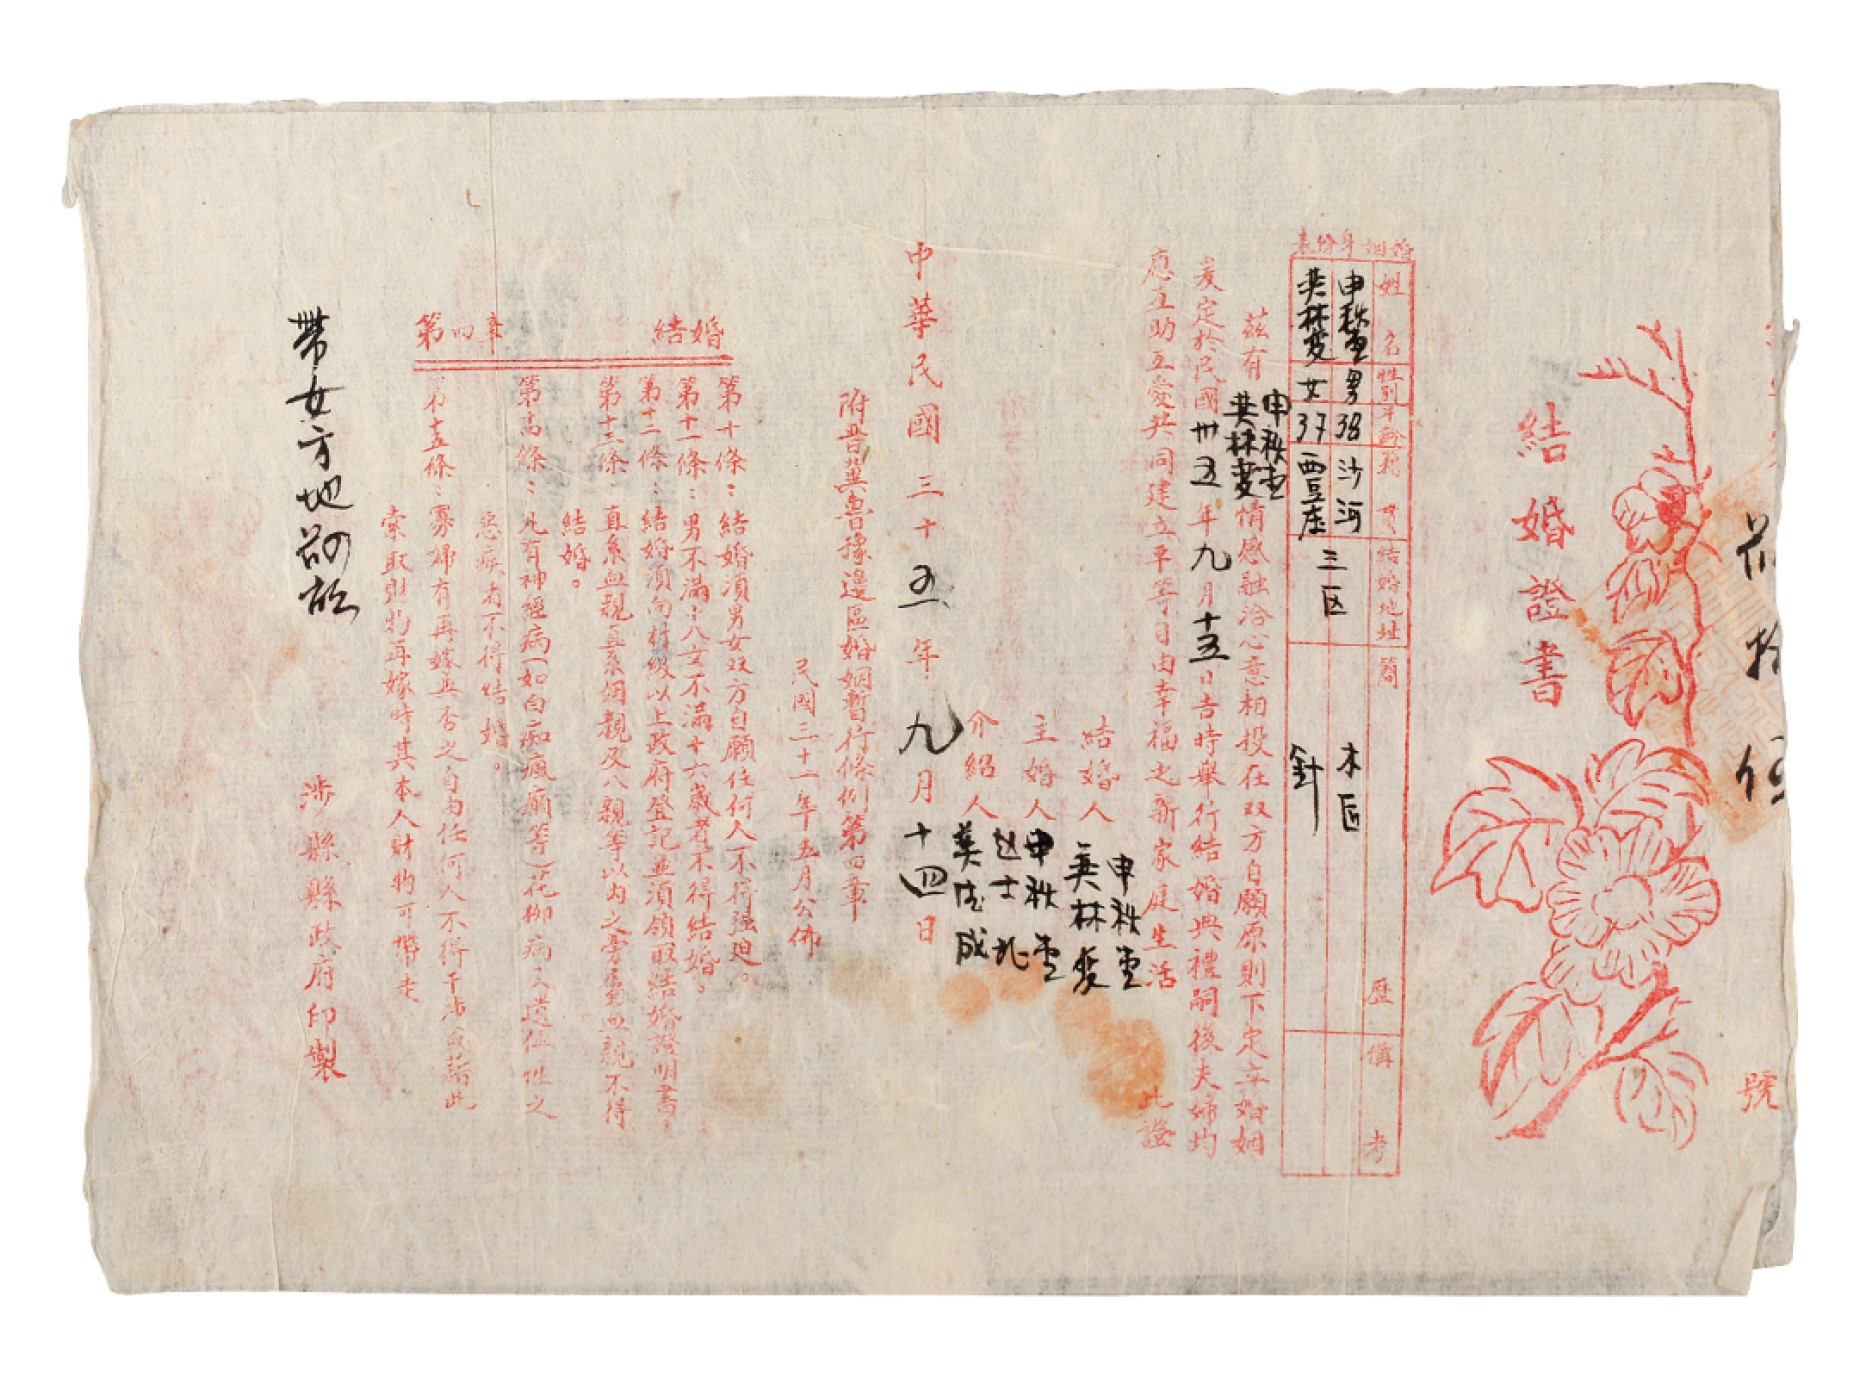 號
結婚證書
婚姻身份表
姓名 性別 年齡 籍貫 結婚地址 簡歷 備考
申秩堂 男 38 沙河 三区 木匠
林变 女 37 西豆庄 針
茲有 申秩堂 林变 情感融洽心意相投在双方自願原則下定立婚姻
爰定於民國卅五年九月十五日吉時舉行結婚典禮嗣後夫婦均
應互助互愛共同建立平等自由幸福之新家庭生活 此證
結婚人 申秩堂 林变
主婚人 申秩堂 赵士
介紹人 成
中華民國三十五年九月十四日
附晋冀魯豫邊區婚姻暫行條例第四章
民國三十一年五月公佈
第四章 結婚
第十條：結婚須男女双方自願任何人不得强迫。
第十一條：男不滿十八女不滿十六歲者不得結婚。
第十二條：結婚須向村級以上政府登記並須領取結婚證明書。
第十三條：直系血親直系姻親及八親等以內之旁系血親不得
結婚。
第十四條：凡有神經病（如白痴瘋癲等）花柳病又遺傳性之
惡疾者不得結婚。
第十五條：寡婦有再嫁並否之自由任何人不得干涉或藉此
索取財物再嫁時其本人財物可帶走
涉縣縣政府印製
帶女方地